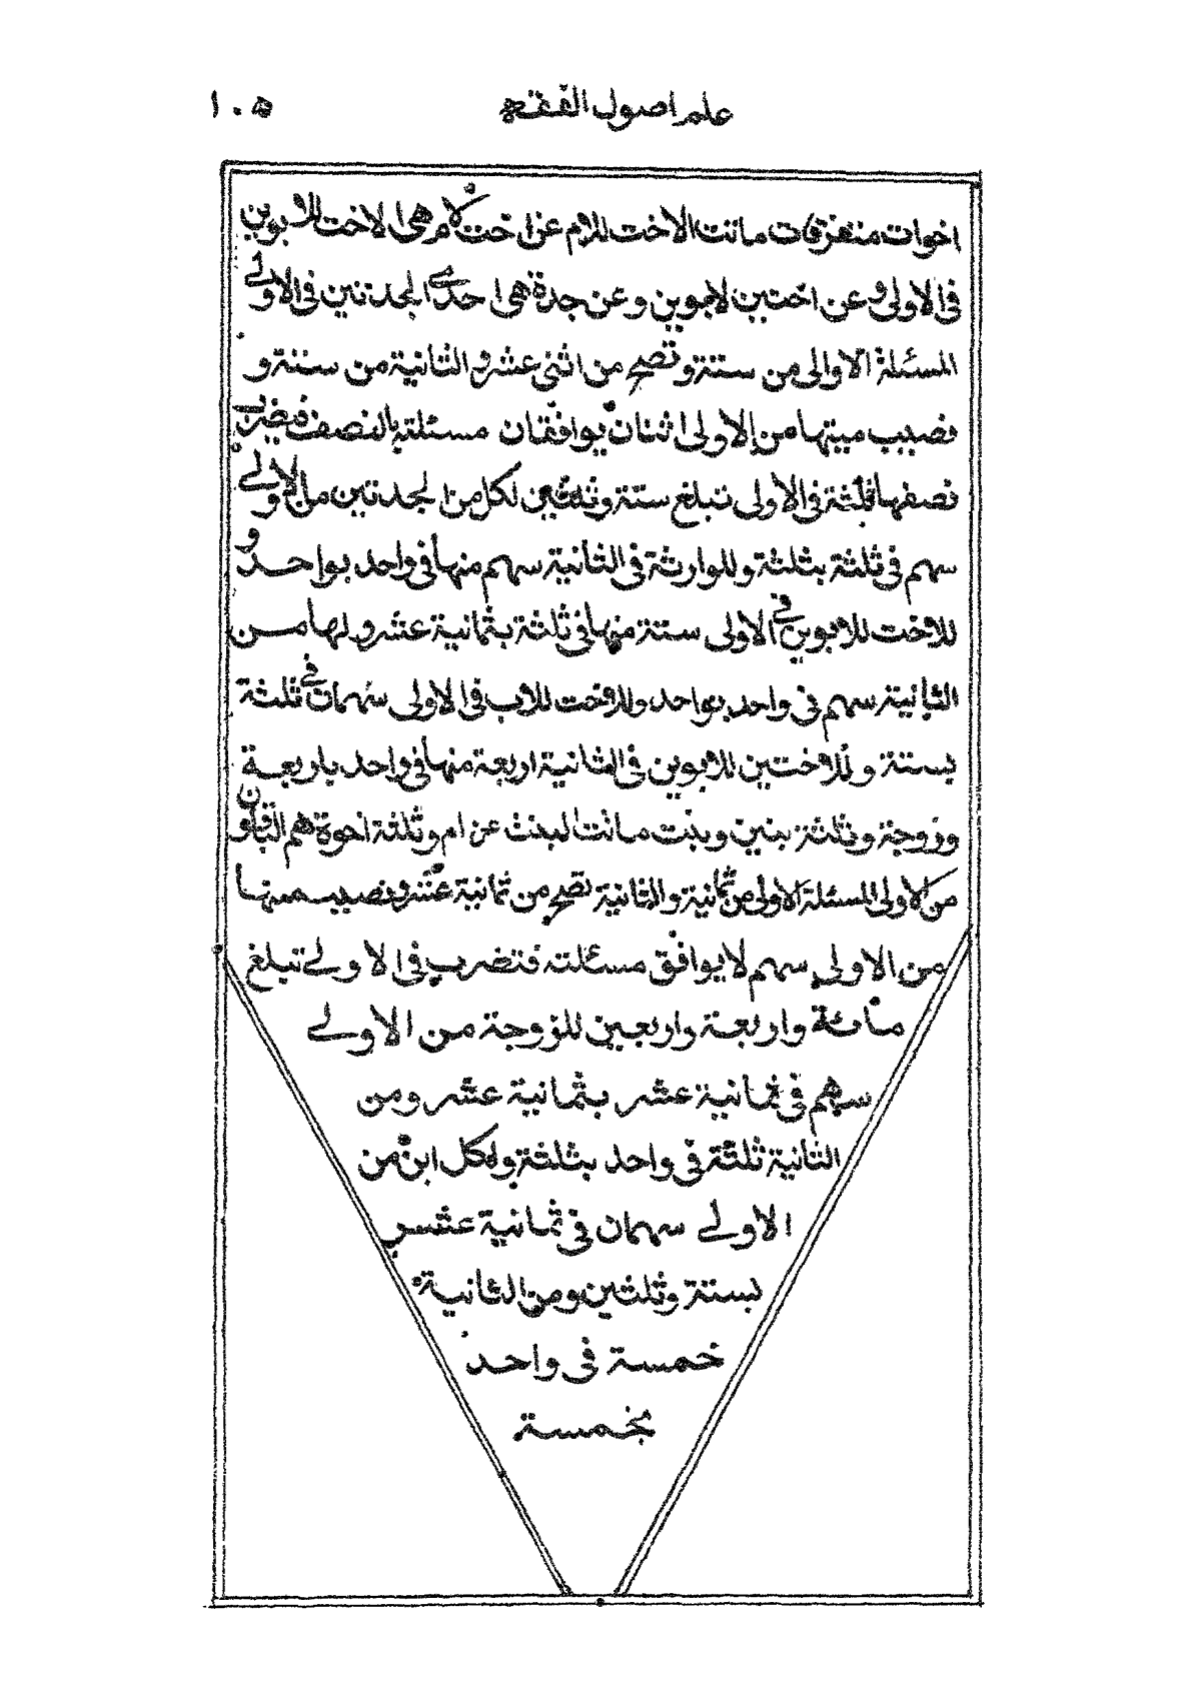 علم اصول الفقه ١٠٥
اخوات متفرقات ماتت الاخت للام عن اخت لام هى الاخت للابوين
فى الاولى وعن اختين لابوين وعن جدة هى احدى الجدتين فى الاولى
المسئلة الاولى من ستة وتصح من اثنى عشر والثانية من ستة و
نصيب ميتها من الاولى اثنان يوافقان مسئلته بالنصف فيضرب
نصفها ثلثة فى الاولى تبلغ ستة وثلثين لكل من الجدتين من الاولى
سهم فى ثلثة بثلثة وللوارثة فى الثانية سهم منها فى واحد بواحد و
للاخت للابوين فى الاولى ستة منها فى ثلثة بثمانية عشر ولها من
الثانية سهم فى واحد بواحد وللاخت للاب فى الاولى سهمان فى ثلثة
بستة وللاختين للابوين فى الثانية اربعة منها فى واحد باربعة
وزوجة وثلثة بنين وبنت ماتت البنت عن ام وثلثة اخوة هم الباقون
من الاولى المسئلة الاولى من ثمانية والثانية تصح من ثمانية عشر ونصيب ميتها
من الاولى سهم لا يوافق مسئلته فتضرب فى الاولى تبلغ
مائة واربعة واربعين للزوجة من الاولى
سهم فى ثمانية عشر بثمانية عشر ومن
الثانية ثلثة فى واحد بثلثة ولكل ابن من
الاولى سهمان فى ثمانية عشر
بستة وثلثين ومن الثانية
خمسة فى واحد
بخمسة